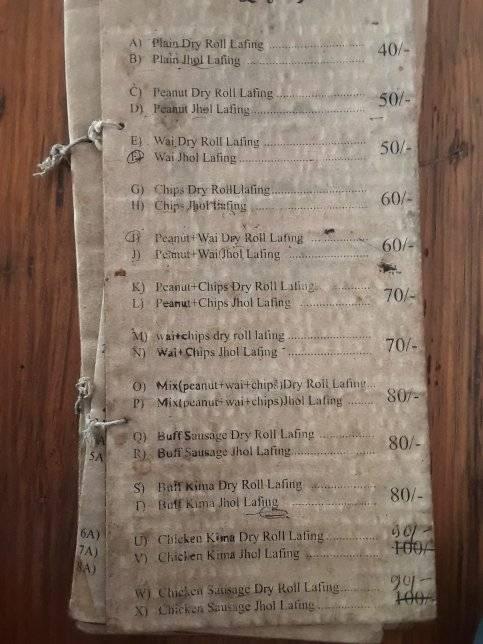 A) Plain Dry Roll Lafing .......................... 40/-
B) Plain Jhol Lafing ................................
C) Peanut Dry Roll Lafing ........................ 50/-
D) Peanut Jhol Lafing ..............................
E) Wai Dry Roll Lafing ............................. 50/-
F) Wai Jhol Lafing ...................................
G) Chips Dry RollLlafing .......................... 60/-
H) Chips Jhol lafing .................................
I) Peanut+Wai Dry Roll Lafing ................. 60/-
J) Peanut+Wai Jhol Lafing .......................
K) Peanut+Chips Dry Roll Lafing .............. 70/-
L) Peanut+Chips Jhol Lafing ....................
M) wai+chips dry roll lafing ..................... 70/-
N) Wai+Chips Jhol Lafing ........................
O) Mix(peanut+wai+chips)Dry Roll Lafing... 80/-
P) Mix(peanut+wai+chips)Jhol Lafing ........
Q) Buff Sausage Dry Roll Lafing ............... 80/-
R) Buff Sausage Jhol Lafing ......................
S) Buff Kima Dry Roll Lafing .................... 80/-
T) Buff Kima Jhol Lafing ..........................
U) Chicken Kima Dry Roll Lafing .............. 90/-
V) Chicken Kima Jhol Lafing .................... 100/-
W) Chicken Sausage Dry Roll Lafing......... 90/-
X) Chicken Sausage Jhol Lafing ............... 100/-
5A
6A)
7A)
8A)